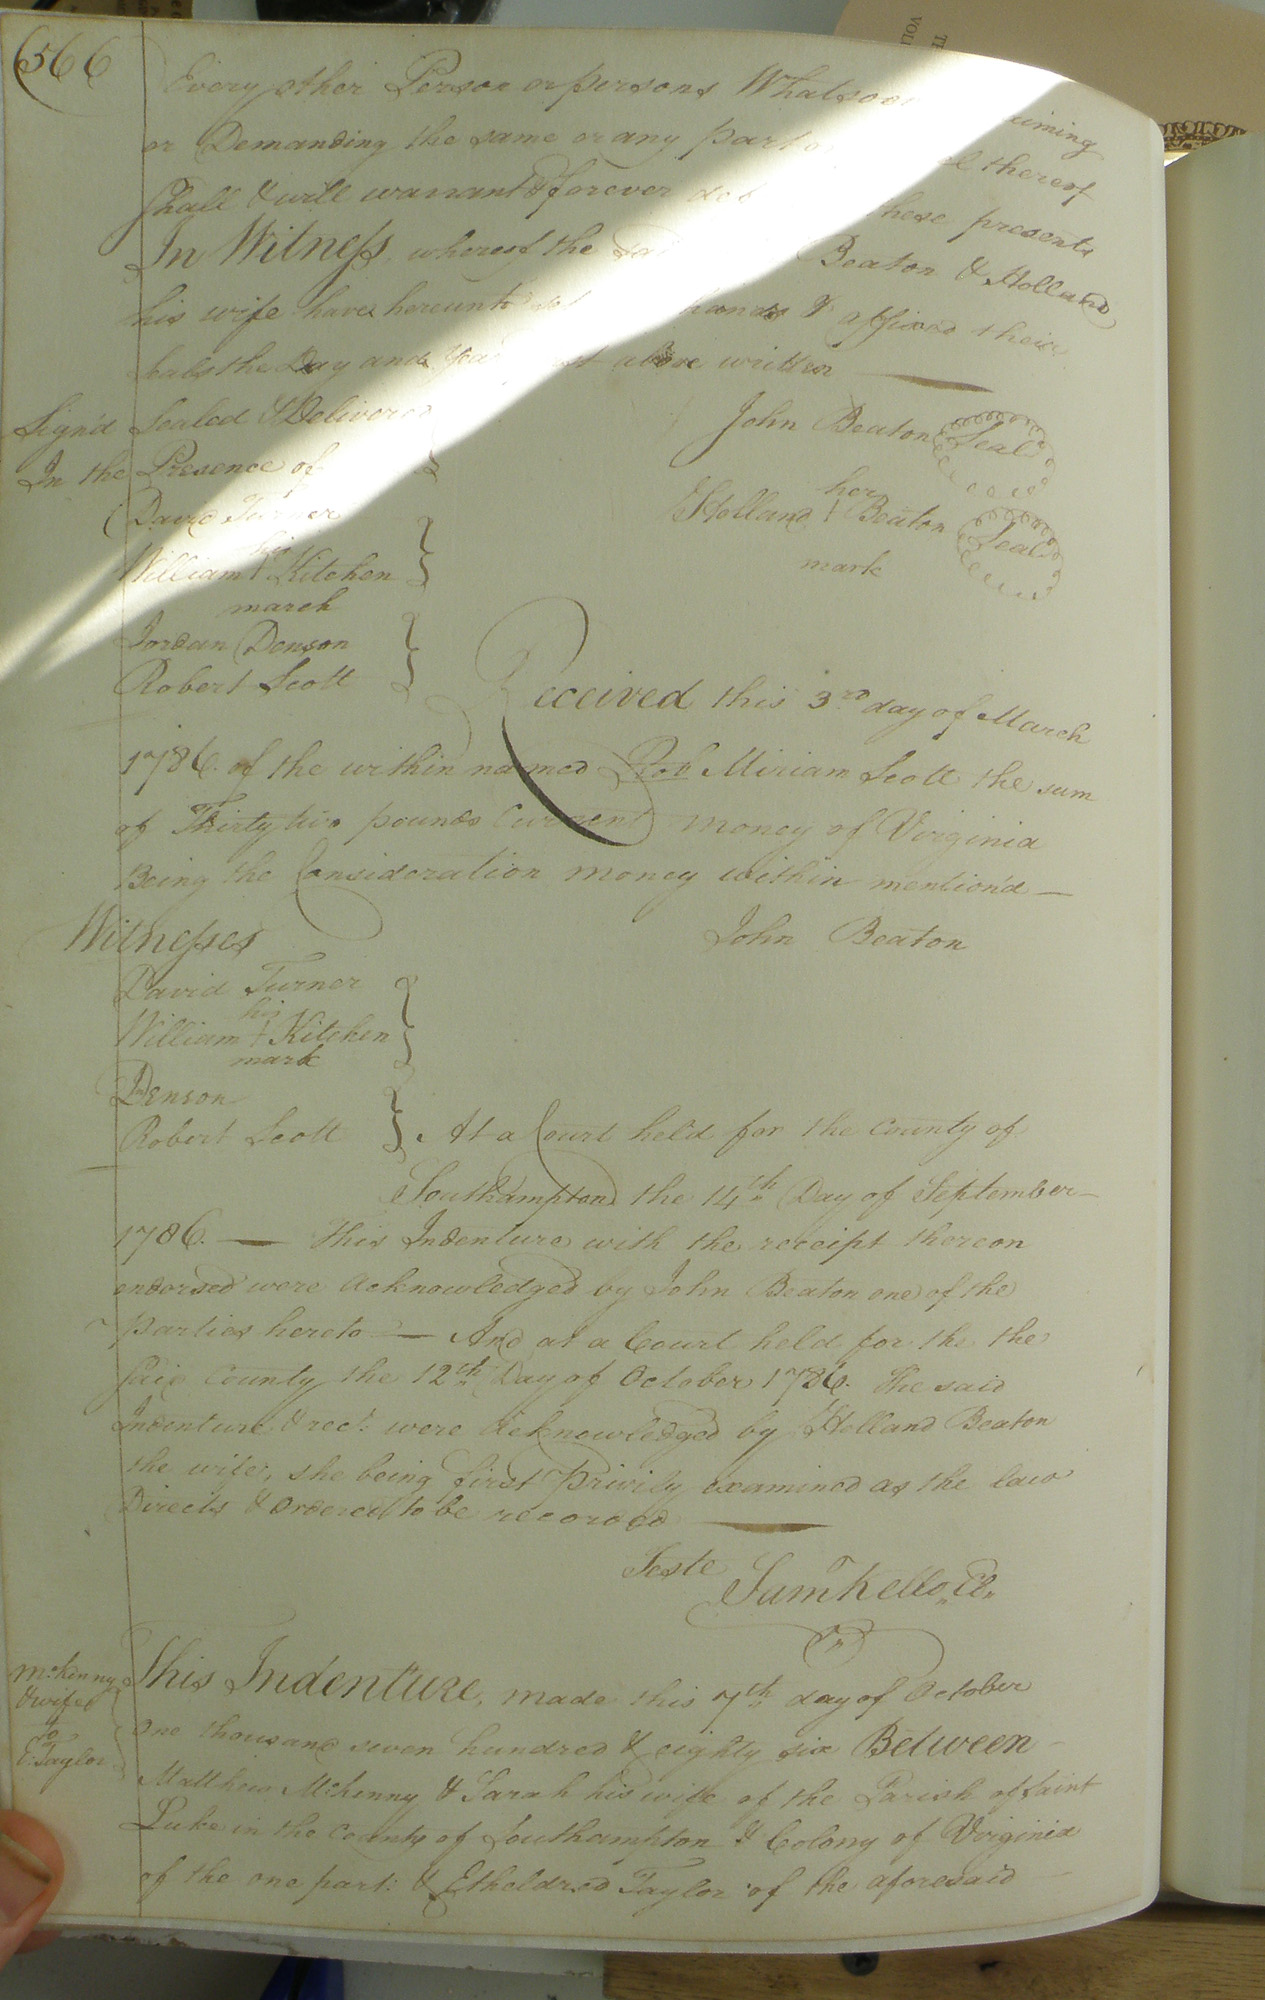 566
Every other Person or persons Whatsoe iming
or Demanding the same or any part o l thereof
Shall & will warrant & forever de these presents
In Witness, whereof the sa Beaton & Holland
his wife have hereunto set hands & affixed their
Seals the Day and Year st above written
Sign'd Sealed & Delivered
In the Presence of
John Beaton Seal
David Turner
her
Holland + Beaton Seal
mark
his
William + Kitchen
march
Jordan Denson
Robert Scott
Received this 3rd day of March
1786. of the within named Rob Miriam Scott the sum
of Thirty two pounds Current money of Virginia
Being the Consideration money within mention'd
Witnesses
John Beaton
David Turner
his
William + Kitchen
mark
Denson
Robert Scott
At a Court held for the County of
Southampton the 14th Day of September
1786. — This Indenture with the receipt thereon
endorsed were Acknowledged by John Beaton one of the
parties hereto — And at a Court held for the the
said County the 12th Day of October 1786. The said
Indenture & rect: were Acknowledged by Holland Beaton
the wife, she being first privily examined as the law
Directs & Ordered to be recorded
Teste Saml Kello, Cl
McKenny
& wife
to
E. Taylor
This Indenture, made this 7th day of October
One thousand seven hundred & eighty six Between
Matthew McKenny & Sarah his wife of the Parish of Saint
Luke in the County of Southampton & Colony of Virginia
of the one part: & Etheldred Taylor of the aforesaid